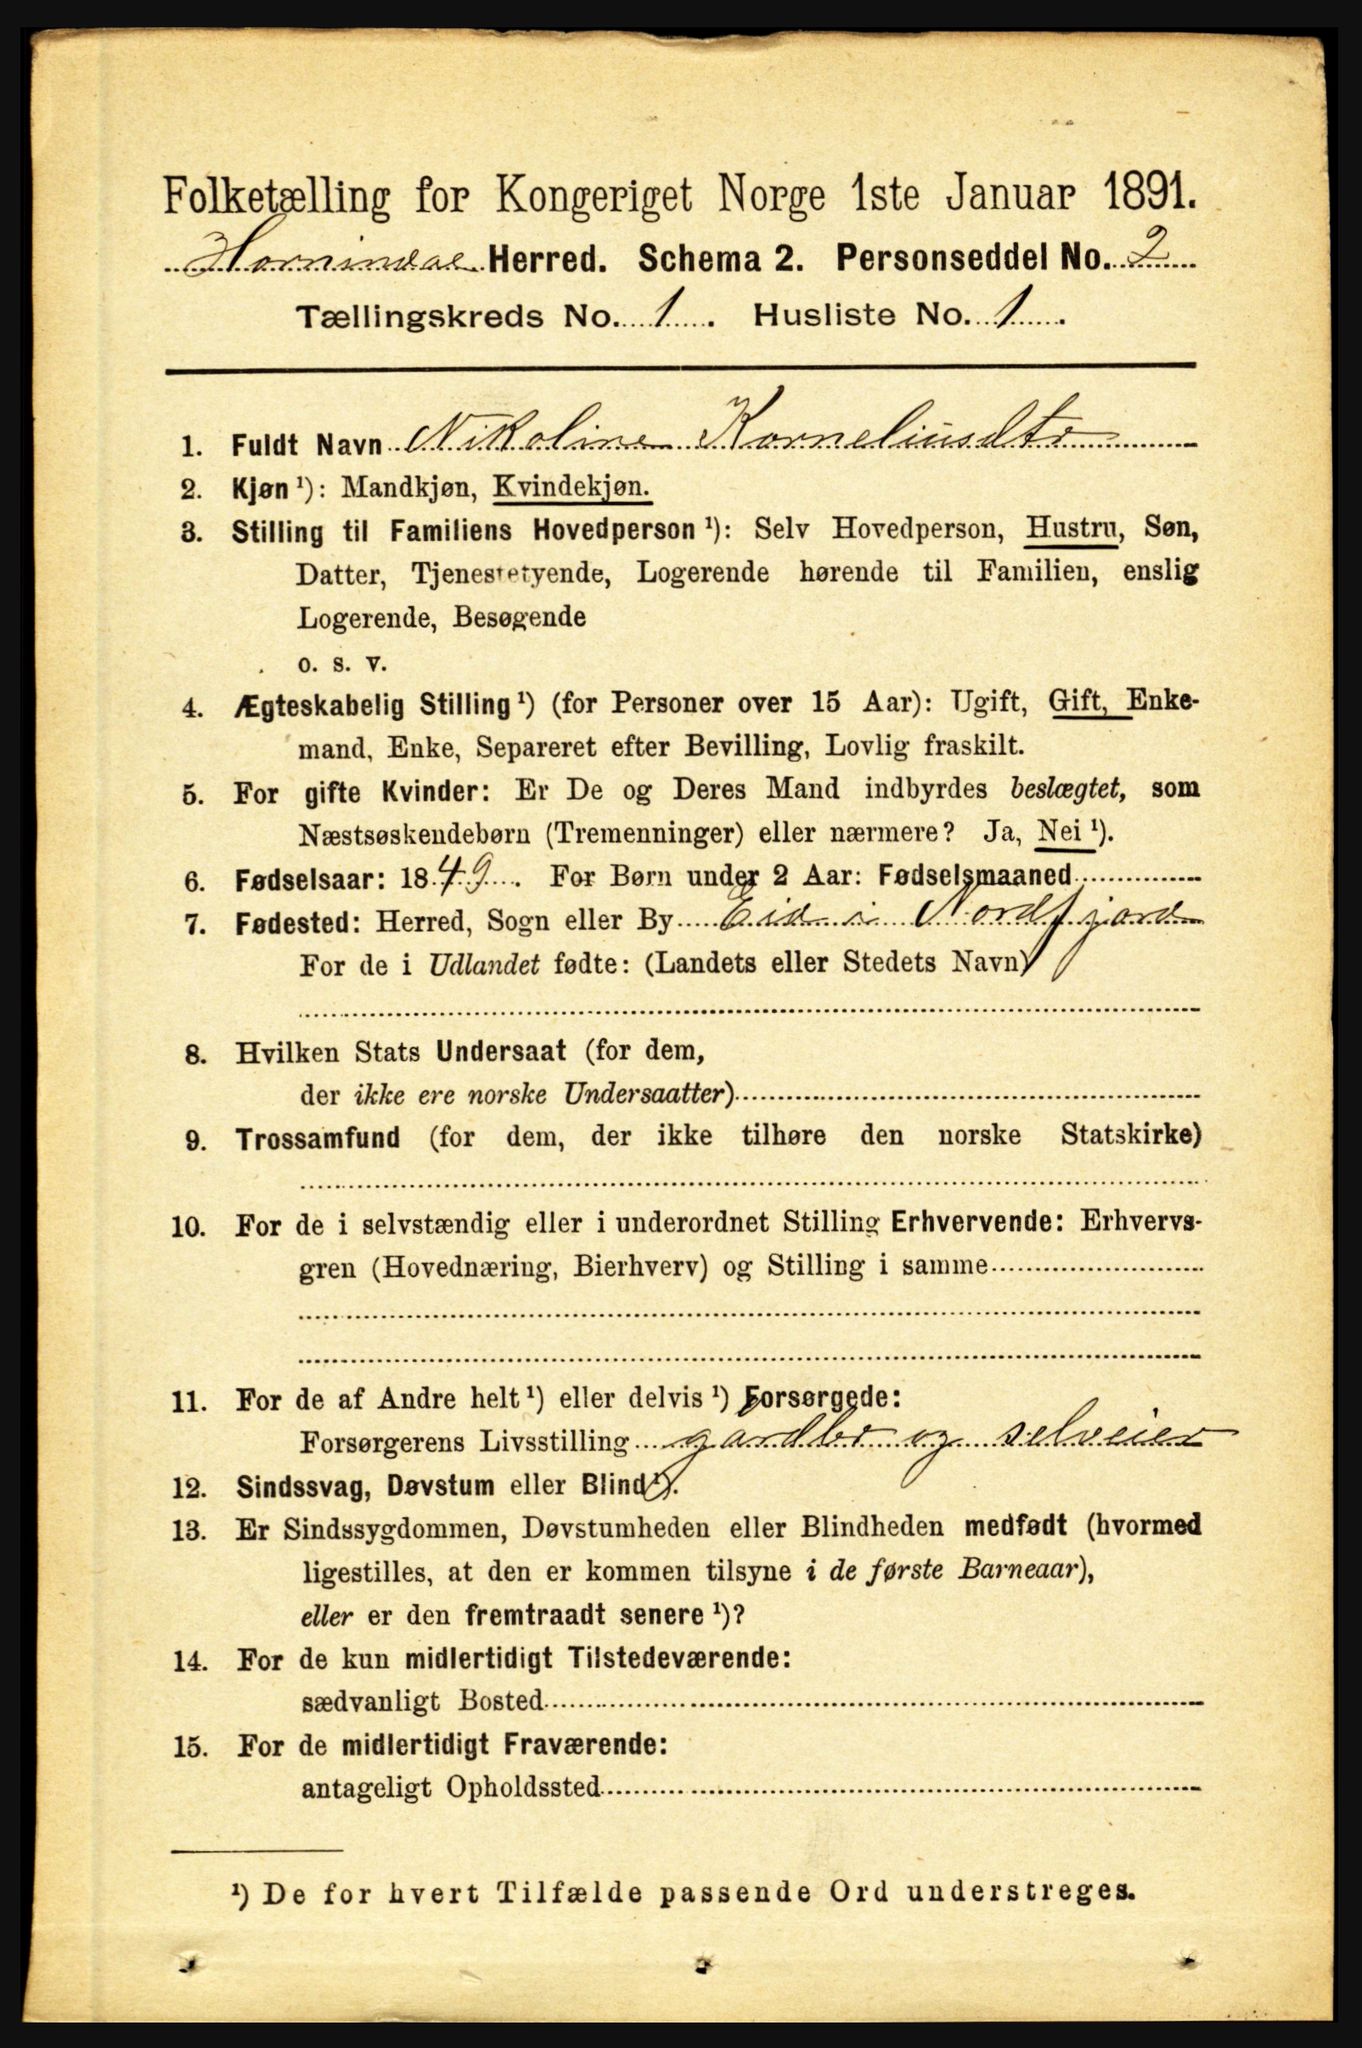 Folketælling for Kongeriget Norge 1ste Januar 1891.
Hornindal Herred. Schema 2. Personseddel No. 2
Tællingskreds No. 1. Husliste No. 1.
1. Fuldt Navn Nikoline Korneliusdtr
2. Kjøn ¹): Mandkjøn, Kvindekjøn.
3. Stilling til Familiens Hovedperson ¹): Selv Hovedperson, Hustru, Søn,
Datter, Tjenestetyende, Logerende hørende til Familien, enslig
Logerende, Besøgende
o. s. v.
4. Ægteskabelig Stilling ¹) (for Personer over 15 Aar): Ugift, Gift, Enke-
mand, Enke, Separeret efter Bevilling, Lovlig fraskilt.
5. For gifte Kvinder: Er De og Deres Mand indbyrdes beslægtet, som
Næstsøskendebørn (Tremenninger) eller nærmere? Ja, Nei ¹).
6. Fødselsaar: 1849. For Børn under 2 Aar: Fødselsmaaned
7. Fødested: Herred, Sogn eller By Eid i Nordfjord
For de i Udlandet fødte: (Landets eller Stedets Navn)
8. Hvilken Stats Undersaat (for dem,
der ikke ere norske Undersaatter)
9. Trossamfund (for dem, der ikke tilhøre den norske Statskirke)
10. For de i selvstændig eller i underordnet Stilling Erhvervende: Erhvervs-
gren (Hovednæring, Bierhverv) og Stilling i samme
11. For de af Andre helt ¹) eller delvis ¹) Forsørgede:
Forsørgerens Livsstilling gardbr og selveier
12. Sindssvag, Døvstum eller Blind ¹).
13. Er Sindssygdommen, Døvstumheden eller Blindheden medfødt (hvormed
ligestilles, at den er kommen tilsyne i de første Barneaar),
eller er den fremtraadt senere ¹)?
14. For de kun midlertidigt Tilstedeværende:
sædvanligt Bosted
15. For de midlertidigt Fraværende:
antageligt Opholdssted
¹) De for hvert Tilfælde passende Ord understreges.